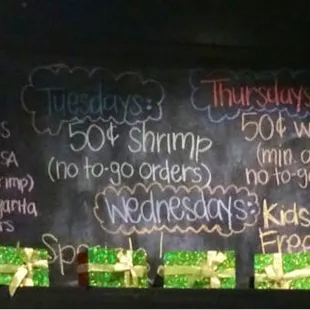 Tuesdays:
50¢ Shrimp
(no to-go orders)
Wednesdays:
Thursdays
50¢ w
(min. o
no to-go
Kids
Free
S
SA
rimp)
garita
rs
Sp